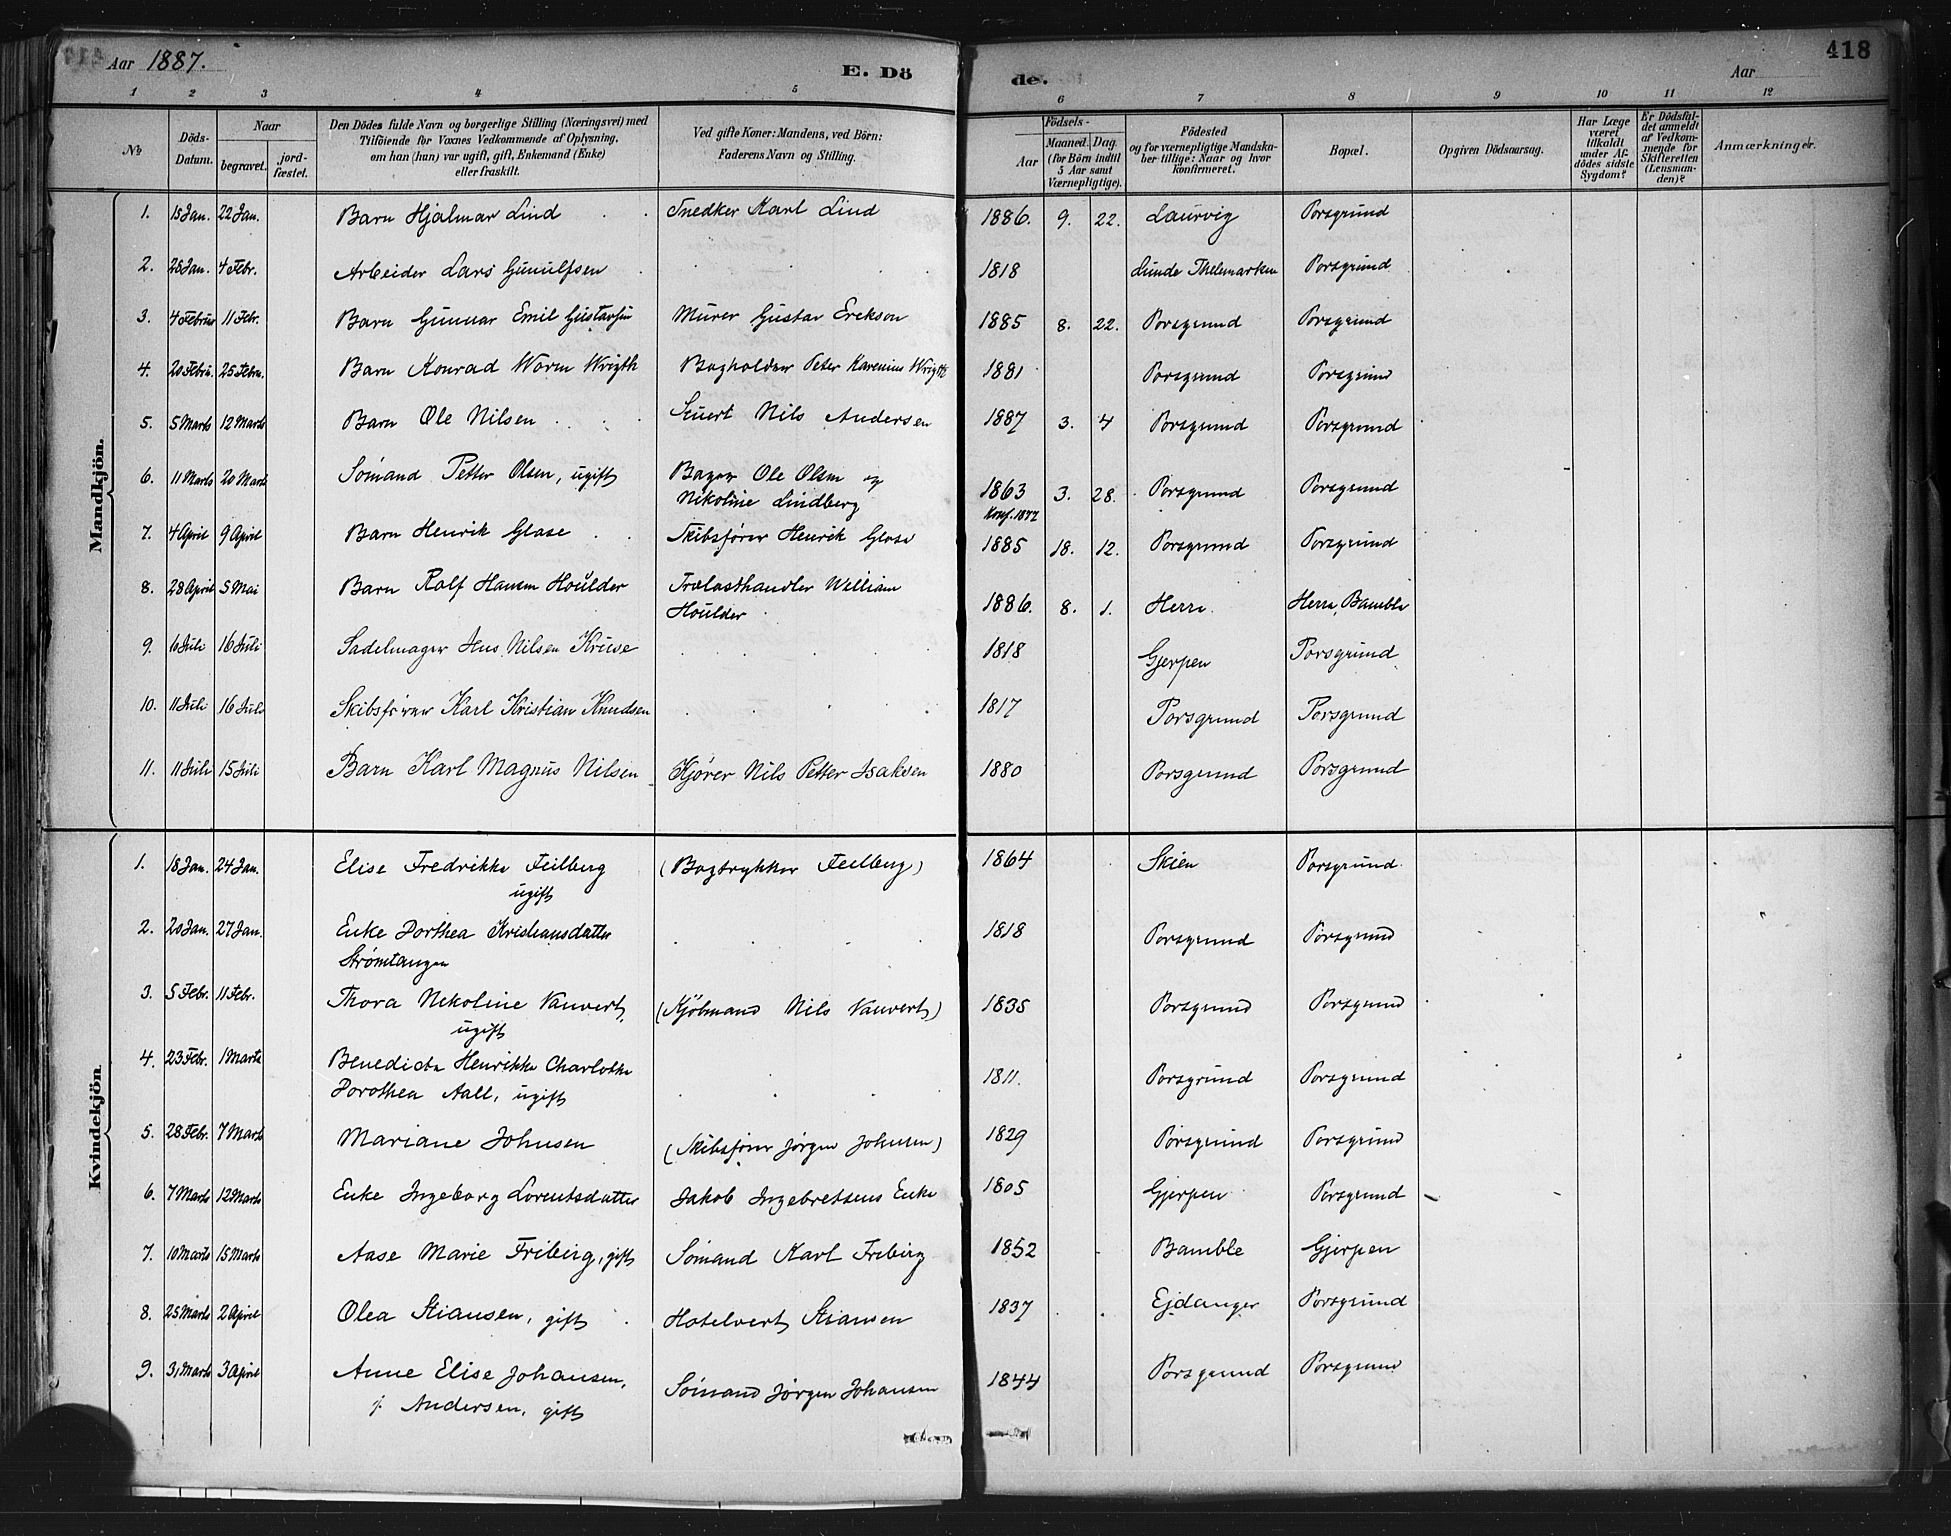 Aar 1887. E. Dö de. Aar 418
1 2 3 4 5 6 7 8 9 10 11 12
No Döds-Datum. Naar begravet. jordfæstet. Den Dödes fulde Navn og borgerlige Stilling (Næringsvei) med Tilföiende for Voxnes Vedkommende af Oplysning, om han (hun) var ugift, gift, Enkemand (Enke) eller fraskilt. Ved gifte Koner: Mandens, ved Börn: Faderens Navn og Stilling. Födsels- Aar Maaned. Dag. (for Börn indtil 5 Aar samt Værnepligtige). Födested og for værnepligtige Mandskaber tillige: Naar og hvor konfirmeret. Bopæl. Opgiven Dödsaarsag. Har Læge været tilkaldt under Afdödes sidste Sygdom? Er Dödsfaldet anmeldt af Vedkommende for Skifteretten (Lensmanden)? Anmærkninger.
Mandkjön.
1. 15 Jan. 22 Jan. Barn Hjalmar Lind Snedker Karl Lind 1886. 9. 22. Laurvig Porsgrund
2. 28 Jan. 4 Febr. Arbeider Lars Gunulfsen 1818 Lunde Thelemarken Porsgrund
3. 4 Februar 11 Febr. Barn Gunnar Emil Gustavsen Murer Gustav Erekson 1885 8. 22. Porsgrund Porsgrund
4. 20 Febru. 25 Febru. Barn Konrad Worm Wrigth Bogholder Peter Karenius Wrigth 1881 Porsgrund Porsgrund
5. 5 Marts 12 Marts Barn Ole Nilsen Nils Andersen 1887 3. 4 Porsgrund Porsgrund
6. 11 Marts 20 Marts Sömand Petter Olsen, ugift Bager Ole Olsen og
Nikoline Lindberg 1863 3. 28. Porsgrund Porsgrund
Konf. 1877
7. 4 April 9 April Barn Henrik Glose Skibsförer Henrik Glose 1885 18. 12. Porsgrund Porsgrund
8. 28 April 5 Mai Barn Rolf Hansen Houlder Trælasthandler William
Houlder 1886. 8. 1. Herre Herre, Bamble
9. 6 Juli 16 Juli Sadelmager Jens Nilsen Kruse 1818 Gjerpen Porsgrund
10. 11 Juli 16 Juli Skibsförer Karl Kristian Knudsen 1817 Porsgrund Porsgrund
11. 11 Juli 15 Juli Barn Karl Magnus Nilsen Kjörer Nils Petter Isaksen 1880 Porsgrund Porsgrund
Kvindekjön
1. 18 Jan. 24 Jan. Elise Fredrikke Feilberg (Bogtrykker Feilberg) 1864 Skien Porsgrund
ugift
2. 20 Jan. 27 Jan. Enke Dorthea Kristiansdatter 1818 Porsgrund Porsgrund
Strömtangen
3. 5 Febr. 11 Febr. Thora Nikoline Vauvert, (Kjöbmand Nils Vauvert) 1835 Porsgrund Porsgrund
ugift
4. 23 Febr. 1 Marts Benedicte Henrikke Charlotte
Dorothea Aall, ugift 1811. Porsgrund Porsgrund
5. 28 Febr. 7 Marts Mariane Johnsen (Skibsförer Jörgen Johnsen) 1829 Porsgrund Porsgrund
6. 7 Marts 12 Marts Enke Ingeborg Lorentsdatter Jakob Ingebretsens Enke 1805 Gjerpen Porsgrund
7. 10 Marts 15 Marts Aase Marie Friberg, gift Sömand Karl Friberg 1852 Bamble Gjerpen
8. 25 Marts 2 April Olea Stiansen, gift Hotelvert Stiansen 1837 Ejdanger Porsgrund
9. 31 Marts 3 April Anne Elise Johansen, Sömand Jörgen Johansen 1844 Porsgrund Porsgrund
f. Andersen, gift